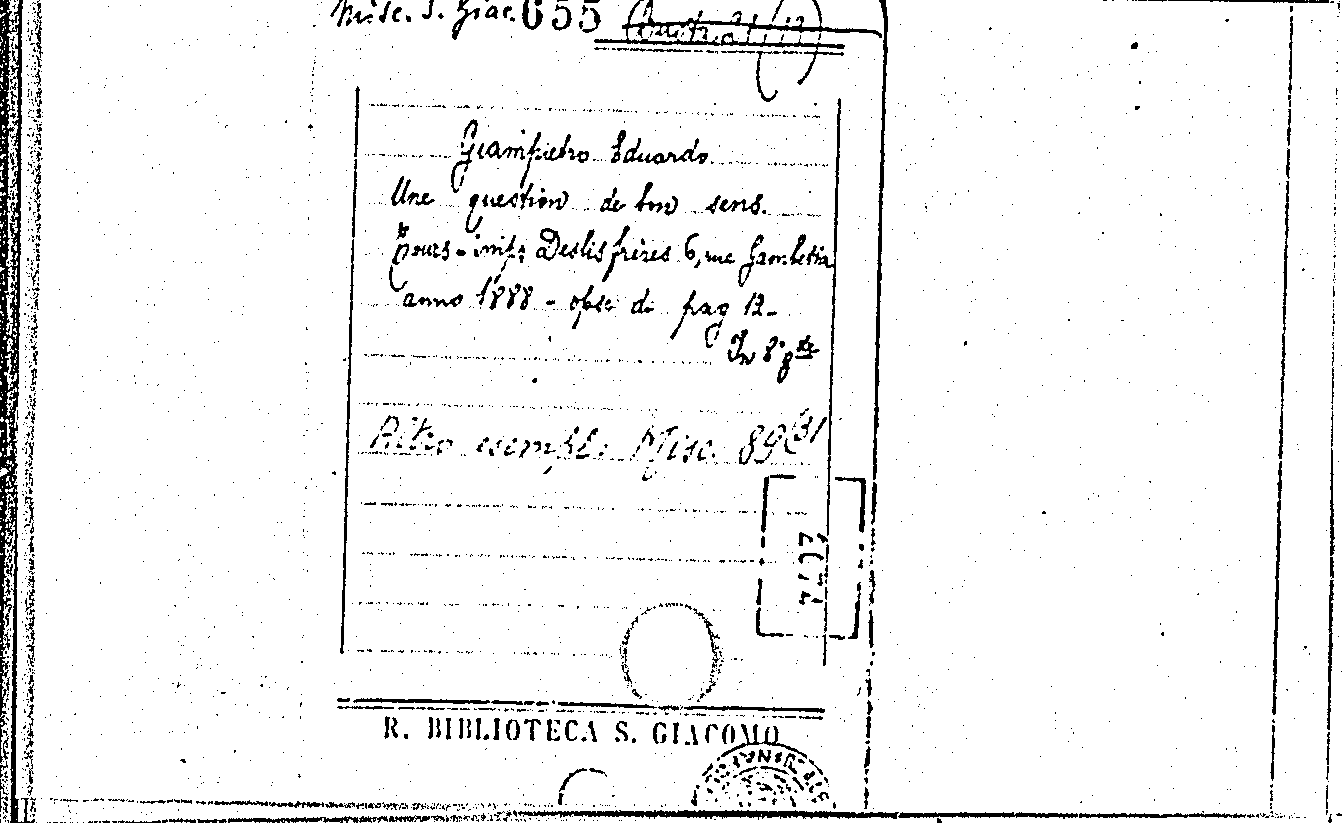 Misc. S. Giac. 655 (Busta 21 (13)
Giampietro Eduardo.
Une question de bon sens.
Tours - imp: Deslis frères 6, rue Gambetta
anno 1888 - opsc di pag 12-
In 8°
Altro esempl: Misc. 89
R. BIBLIOTECA S. GIACOMO